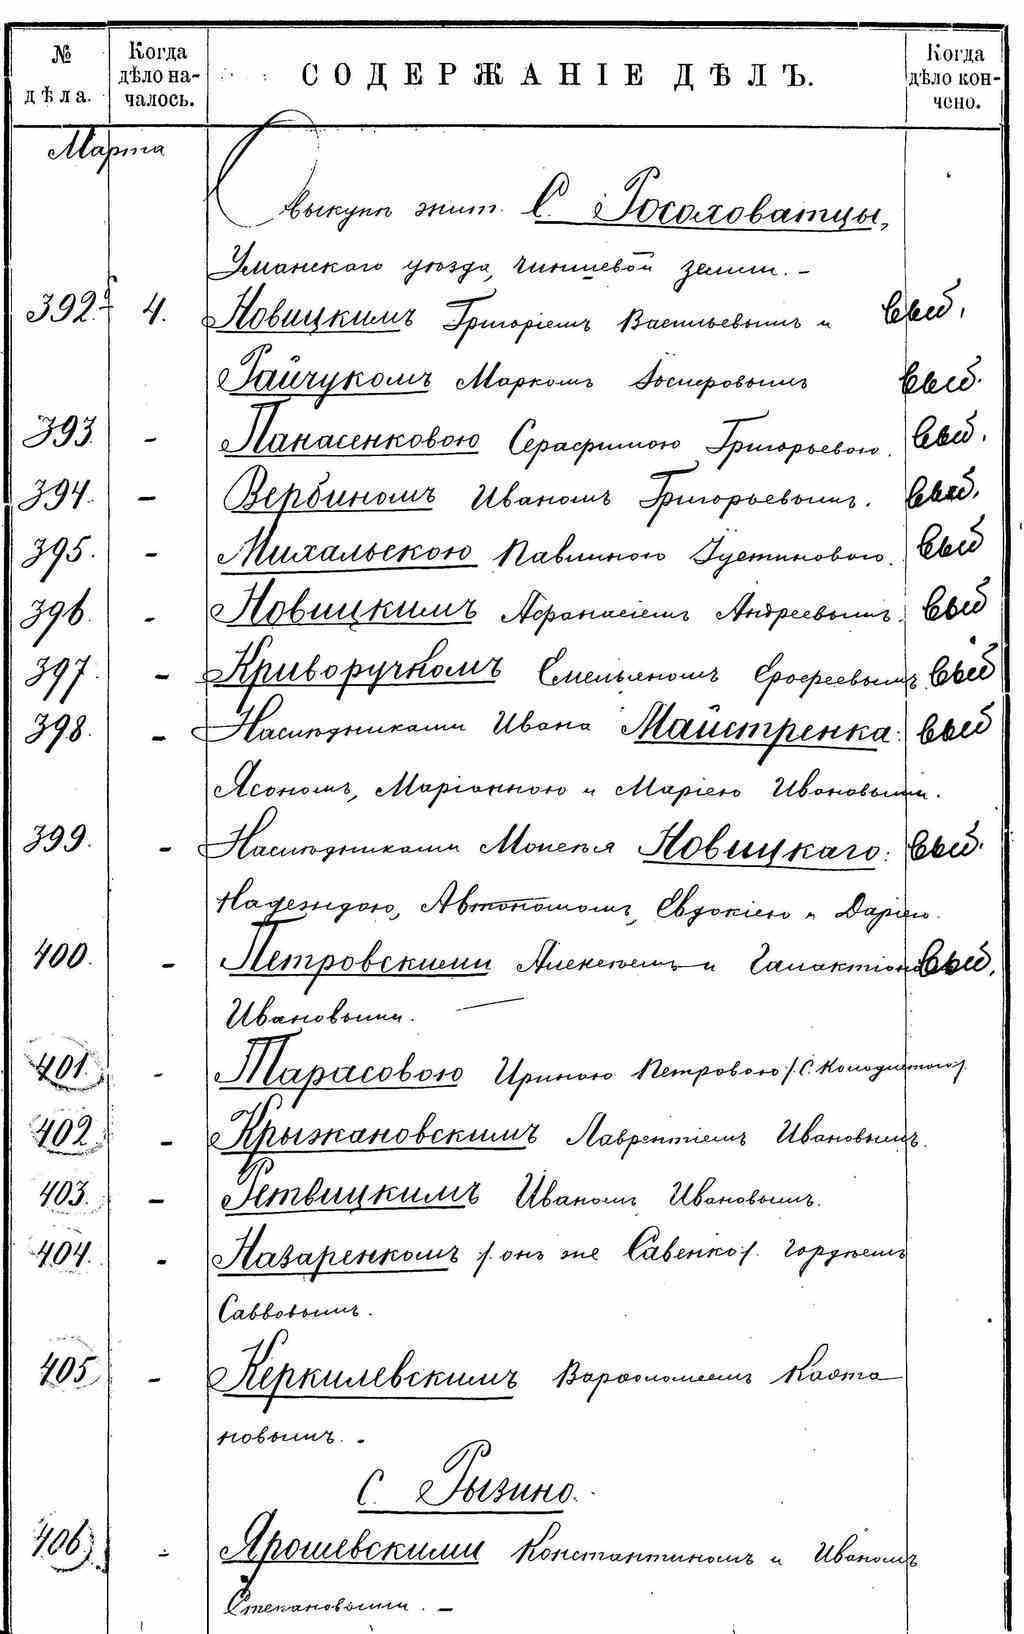 № дѣла. Когда дѣло началось. СОДЕРЖАНІЕ ДѢЛЪ. Когда дѣло кончено.
Марта
О выкупѣ жит. С. Росоховатцы,
Уманскаго уѣзда, чиншевой земли. –
392. 4. Новицкимъ Григоріемъ Васильевымъ и выб.
Гайчукомъ Маркомъ Іосифовымъ выб.
393. – Панасенковою Серафимою Григорьевою. выб.
394. – Вербиномъ Иваномъ Григорьевымъ. выб.
395. – Михальскою Павлиною Іустиновою. выб
396. – Новицкимъ Афанасіемъ Андреевымъ. выб
397. – Криворучкомъ Емельяномъ Ерофеевымъ выб
398. – Наслѣдниками Ивана Майстренка: выб
Ясономъ, Маріанною и Маріею Ивановыми.
399. – Наслѣдниками Моисея Новицкаго: выб.
Надеждою, Автономомъ, Евдокіею и Даріею.
400. – Петровскими Алексѣемъ и Галактіоно выб.
Ивановыми. –
401. – Тарасовою Ириною Петровою /С. Колодистого/.
402. – Крыжановскимъ Лаврентіемъ Ивановымъ.
403. – Ретвицкимъ Иваномъ Ивановымъ.
404. – Назаренкомъ /онъ же Савенко/. Гордѣемъ
Саввовымъ.
405 – Керкилевскимъ Варфоломеемъ Каэта
новымъ. –
С. Рызино.
406. – Ярошевскими Константиномъ и Иваномъ
Степановыми. –